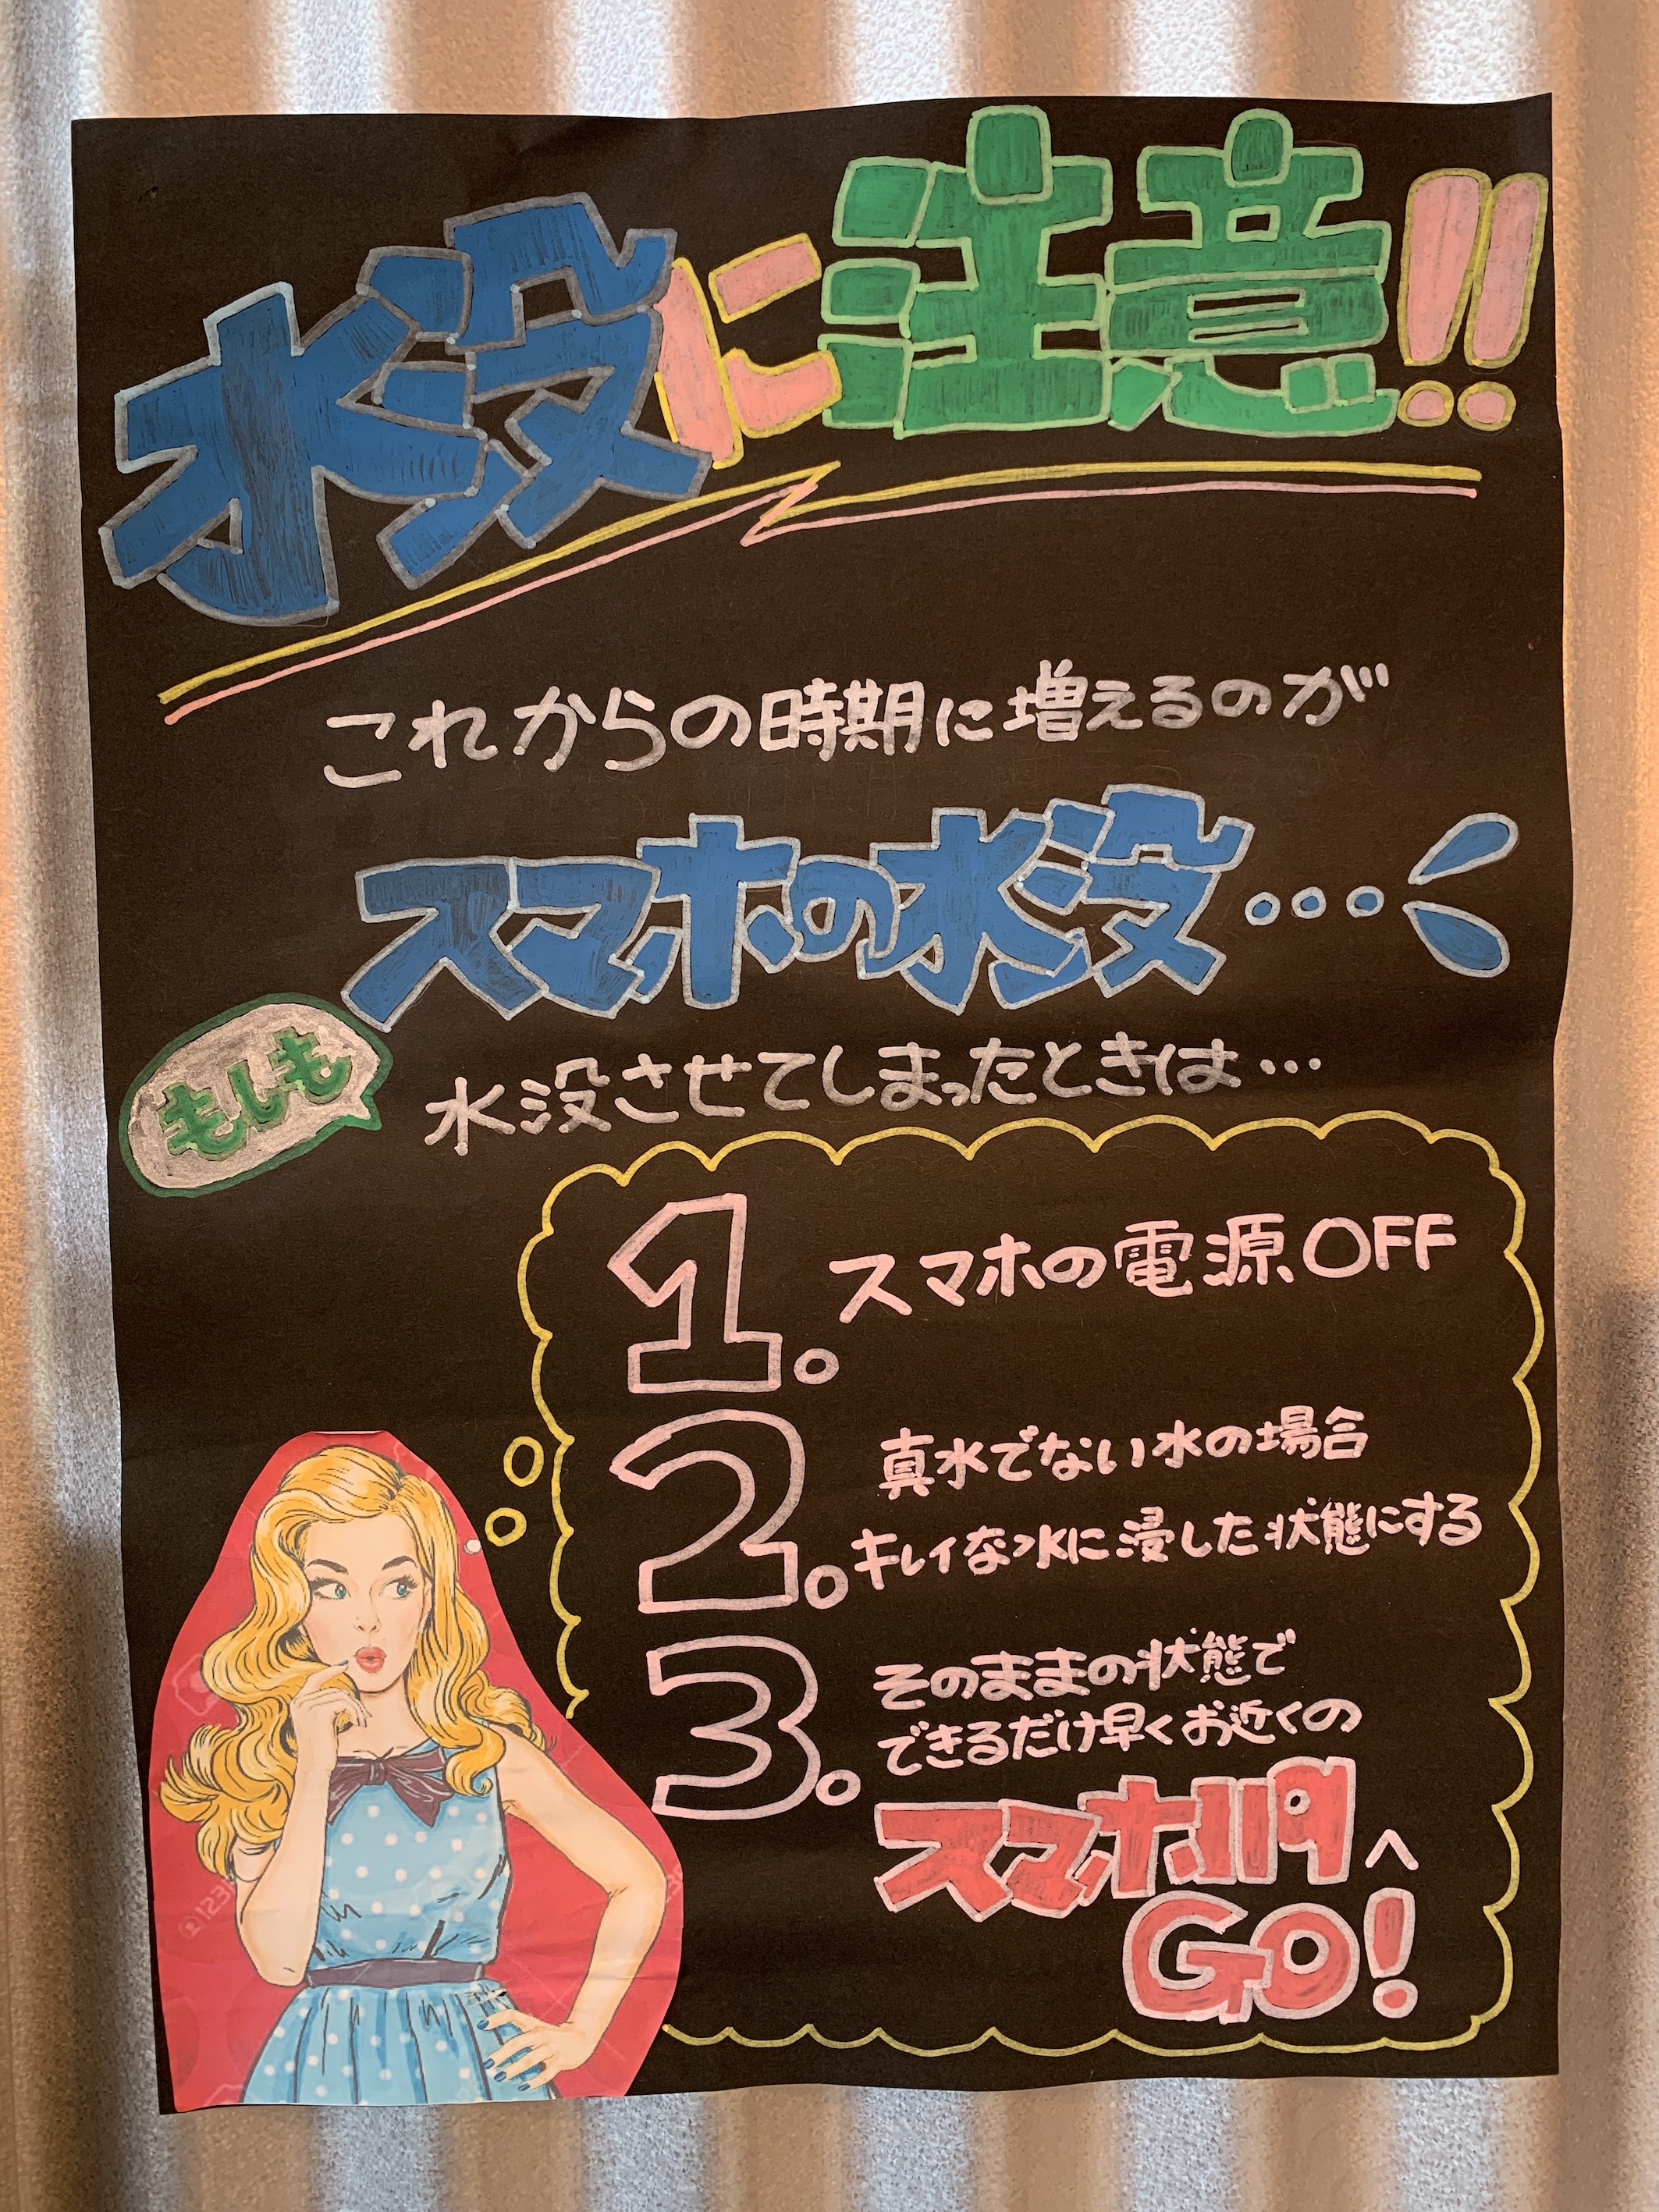 水没に注意!!
これからの時期に増えるのが
スマホの水没...
もしも
水没させてしまったときは...
1. スマホの電源OFF
2. 真水でない水の場合
キレイな水に浸した状態にする
3. そのままの状態で
できるだけ早くお近くの
スマホ119へ
GO!